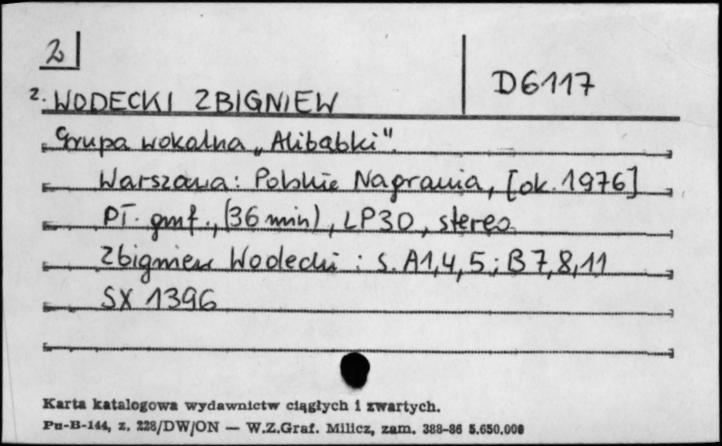 2
D6117
2. WODECKI ZBIGNIEW
Grupa wokalna „Alibabki".
Warszawa: Polskie Nagrania, [ok. 1976]
PŁ. gmf., (36 min), LP30, stereo.
Zbigniew Wodecki: s. A1,4,5; B7,8,11
SX 1396
Karta katalogowa wydawnictw ciągłych i zwartych.
Pu-B-144, z. 228/DW/ON — W.Z.Graf. Milicz, zam. 388-86 5.650.000